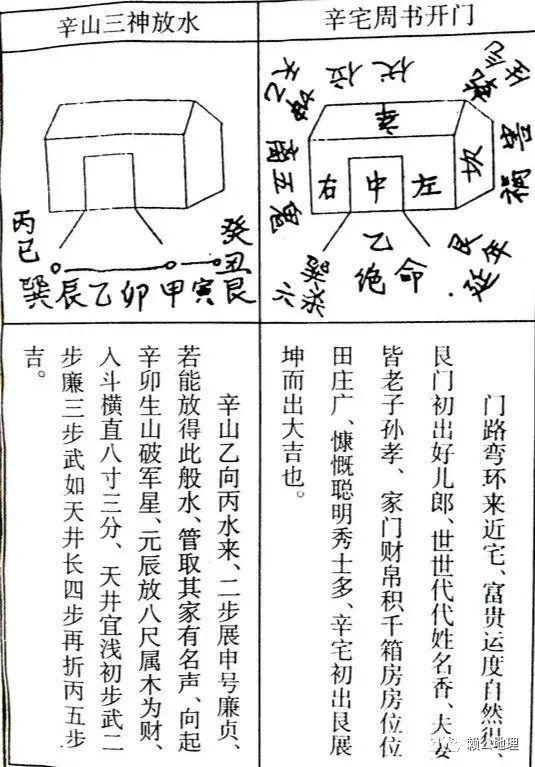 辛宅周书开门
伏位
辛
坎
祸害
右 中 左
乙
绝命
艮
延年
巽
六煞
门路弯环来近宅、富贵运度自然很、
艮门初出好儿郎、世世代代姓名香、夫妻
皆老子孙孝、家门财帛积千箱房房位位
田庄广、慷慨聪明秀士多、辛宅初出艮展
坤而出大吉也。
辛山三神放水
丙巳
癸丑
巽辰乙卯甲寅艮
辛山乙向丙水来、二步展申号廉贞、
若能放得此般水、管取其家有名声、向起
辛卯生山破军星、元辰放八尺属木为财、
入斗横直八寸三分、天井宜浅初步武二
步廉三步武如天井长四步再折丙五步
吉。
赖公地理